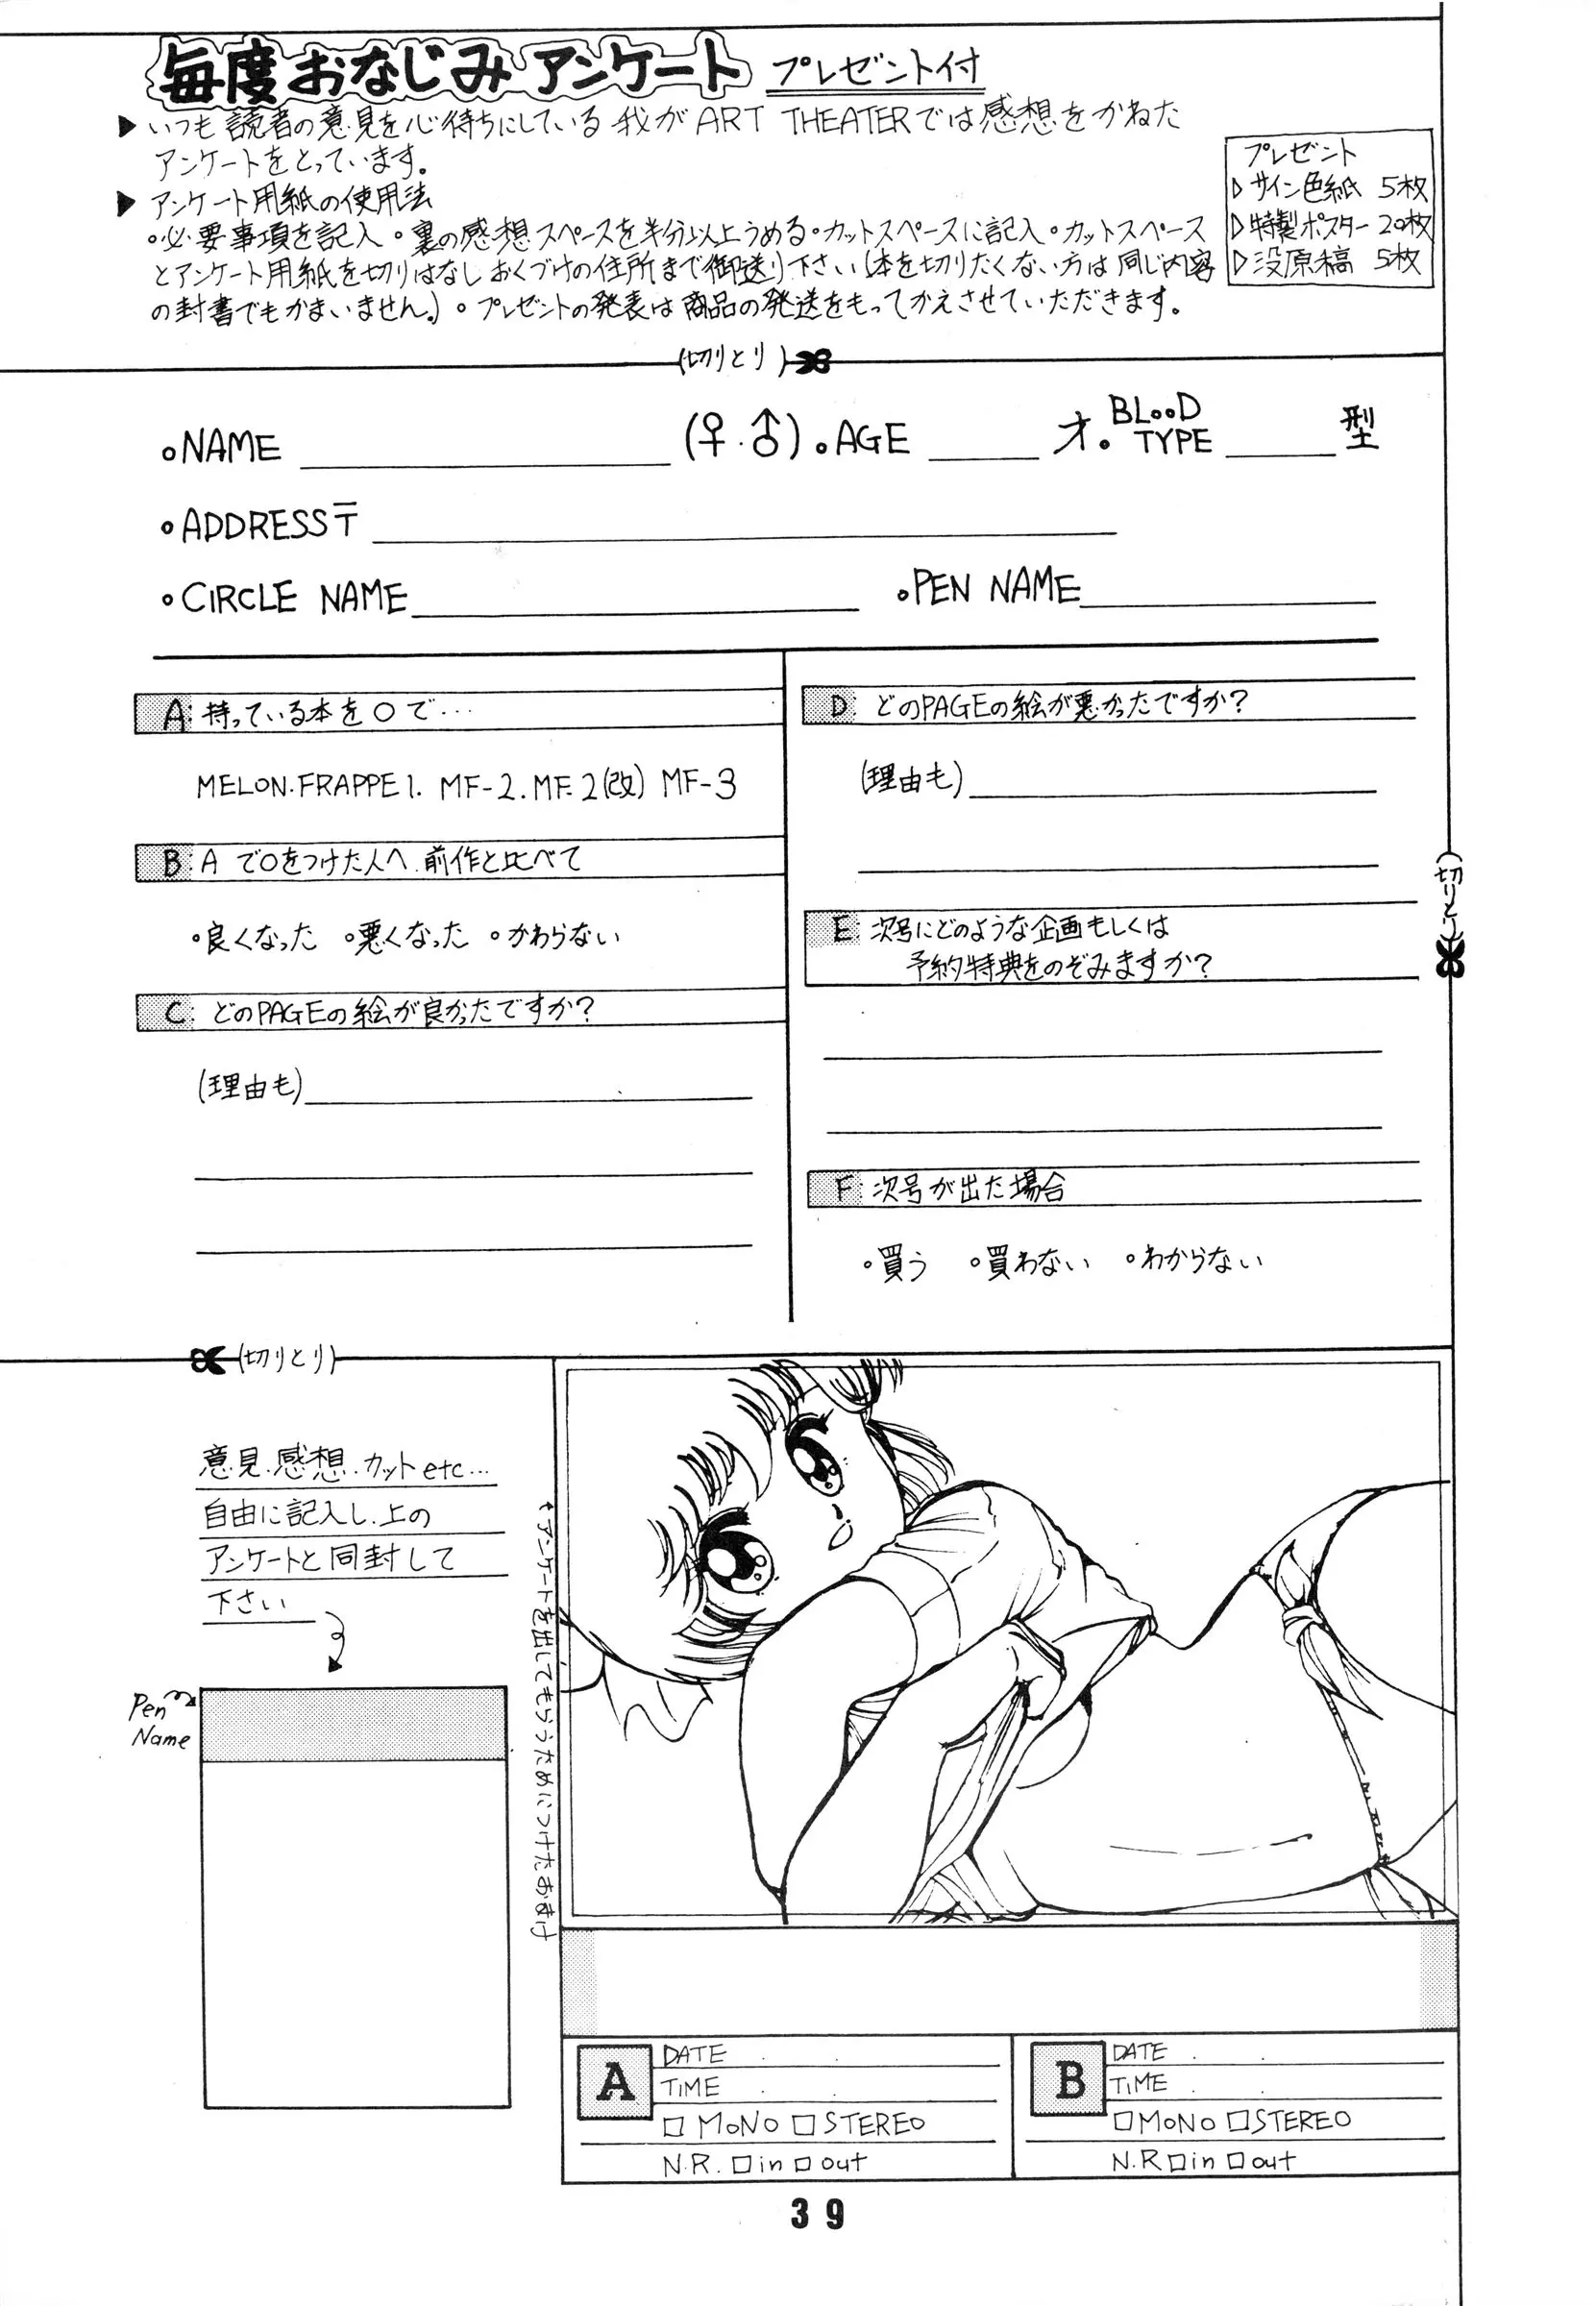 毎度おなじみアンケート プレゼント付
▶いつも読者の意見を心待ちにしている我がART THEATERでは感想をかねた
アンケートをとっています。
▶アンケート用紙の使用法
・必要事項を記入・裏の感想スペースを半分以上うめる・カットスペースに記入・カットスペース
とアンケート用紙を切りはなしおくづけの住所まで御送り下さい(本を切りたくない方は同じ内容
の封書でもかまいません。)。プレゼントの発表は商品の発送をもってかえさせていただきます。
プレゼント
▷サイン色紙 5枚
▷特製ポスター 20枚
▷没原稿 5枚
(切りとり)
・NAME (♀・♂)・AGE 才・BLOOD TYPE 型
・ADDRESS〒
・CIRCLE NAME ・PEN NAME
A: 持っている本を○で…
MELON.FRAPPE1. MF-2. MF.2(改) MF-3
B: Aで○をつけた人へ.前作と比べて
・良くなった ・悪くなった ・かわらない
C: どのPAGEの絵が良かったですか?
(理由も)
D: どのPAGEの絵が悪かったですか?
(理由も)
E: 次号にどのような企画もしくは
予約特典をのぞみますか?
F: 次号が出た場合
・買う ・買わない ・わからない
(切りとり)
(切りとり)
意見.感想.カットetc…
自由に記入し.上の
アンケートと同封して
下さい
Pen
Name
←アンケートを出してもらうためにつけたおまけ
A DATE
TIME
□MONO □STEREO
N.R. □in □out
B DATE
TIME
□MONO □STEREO
N.R □in □out
39